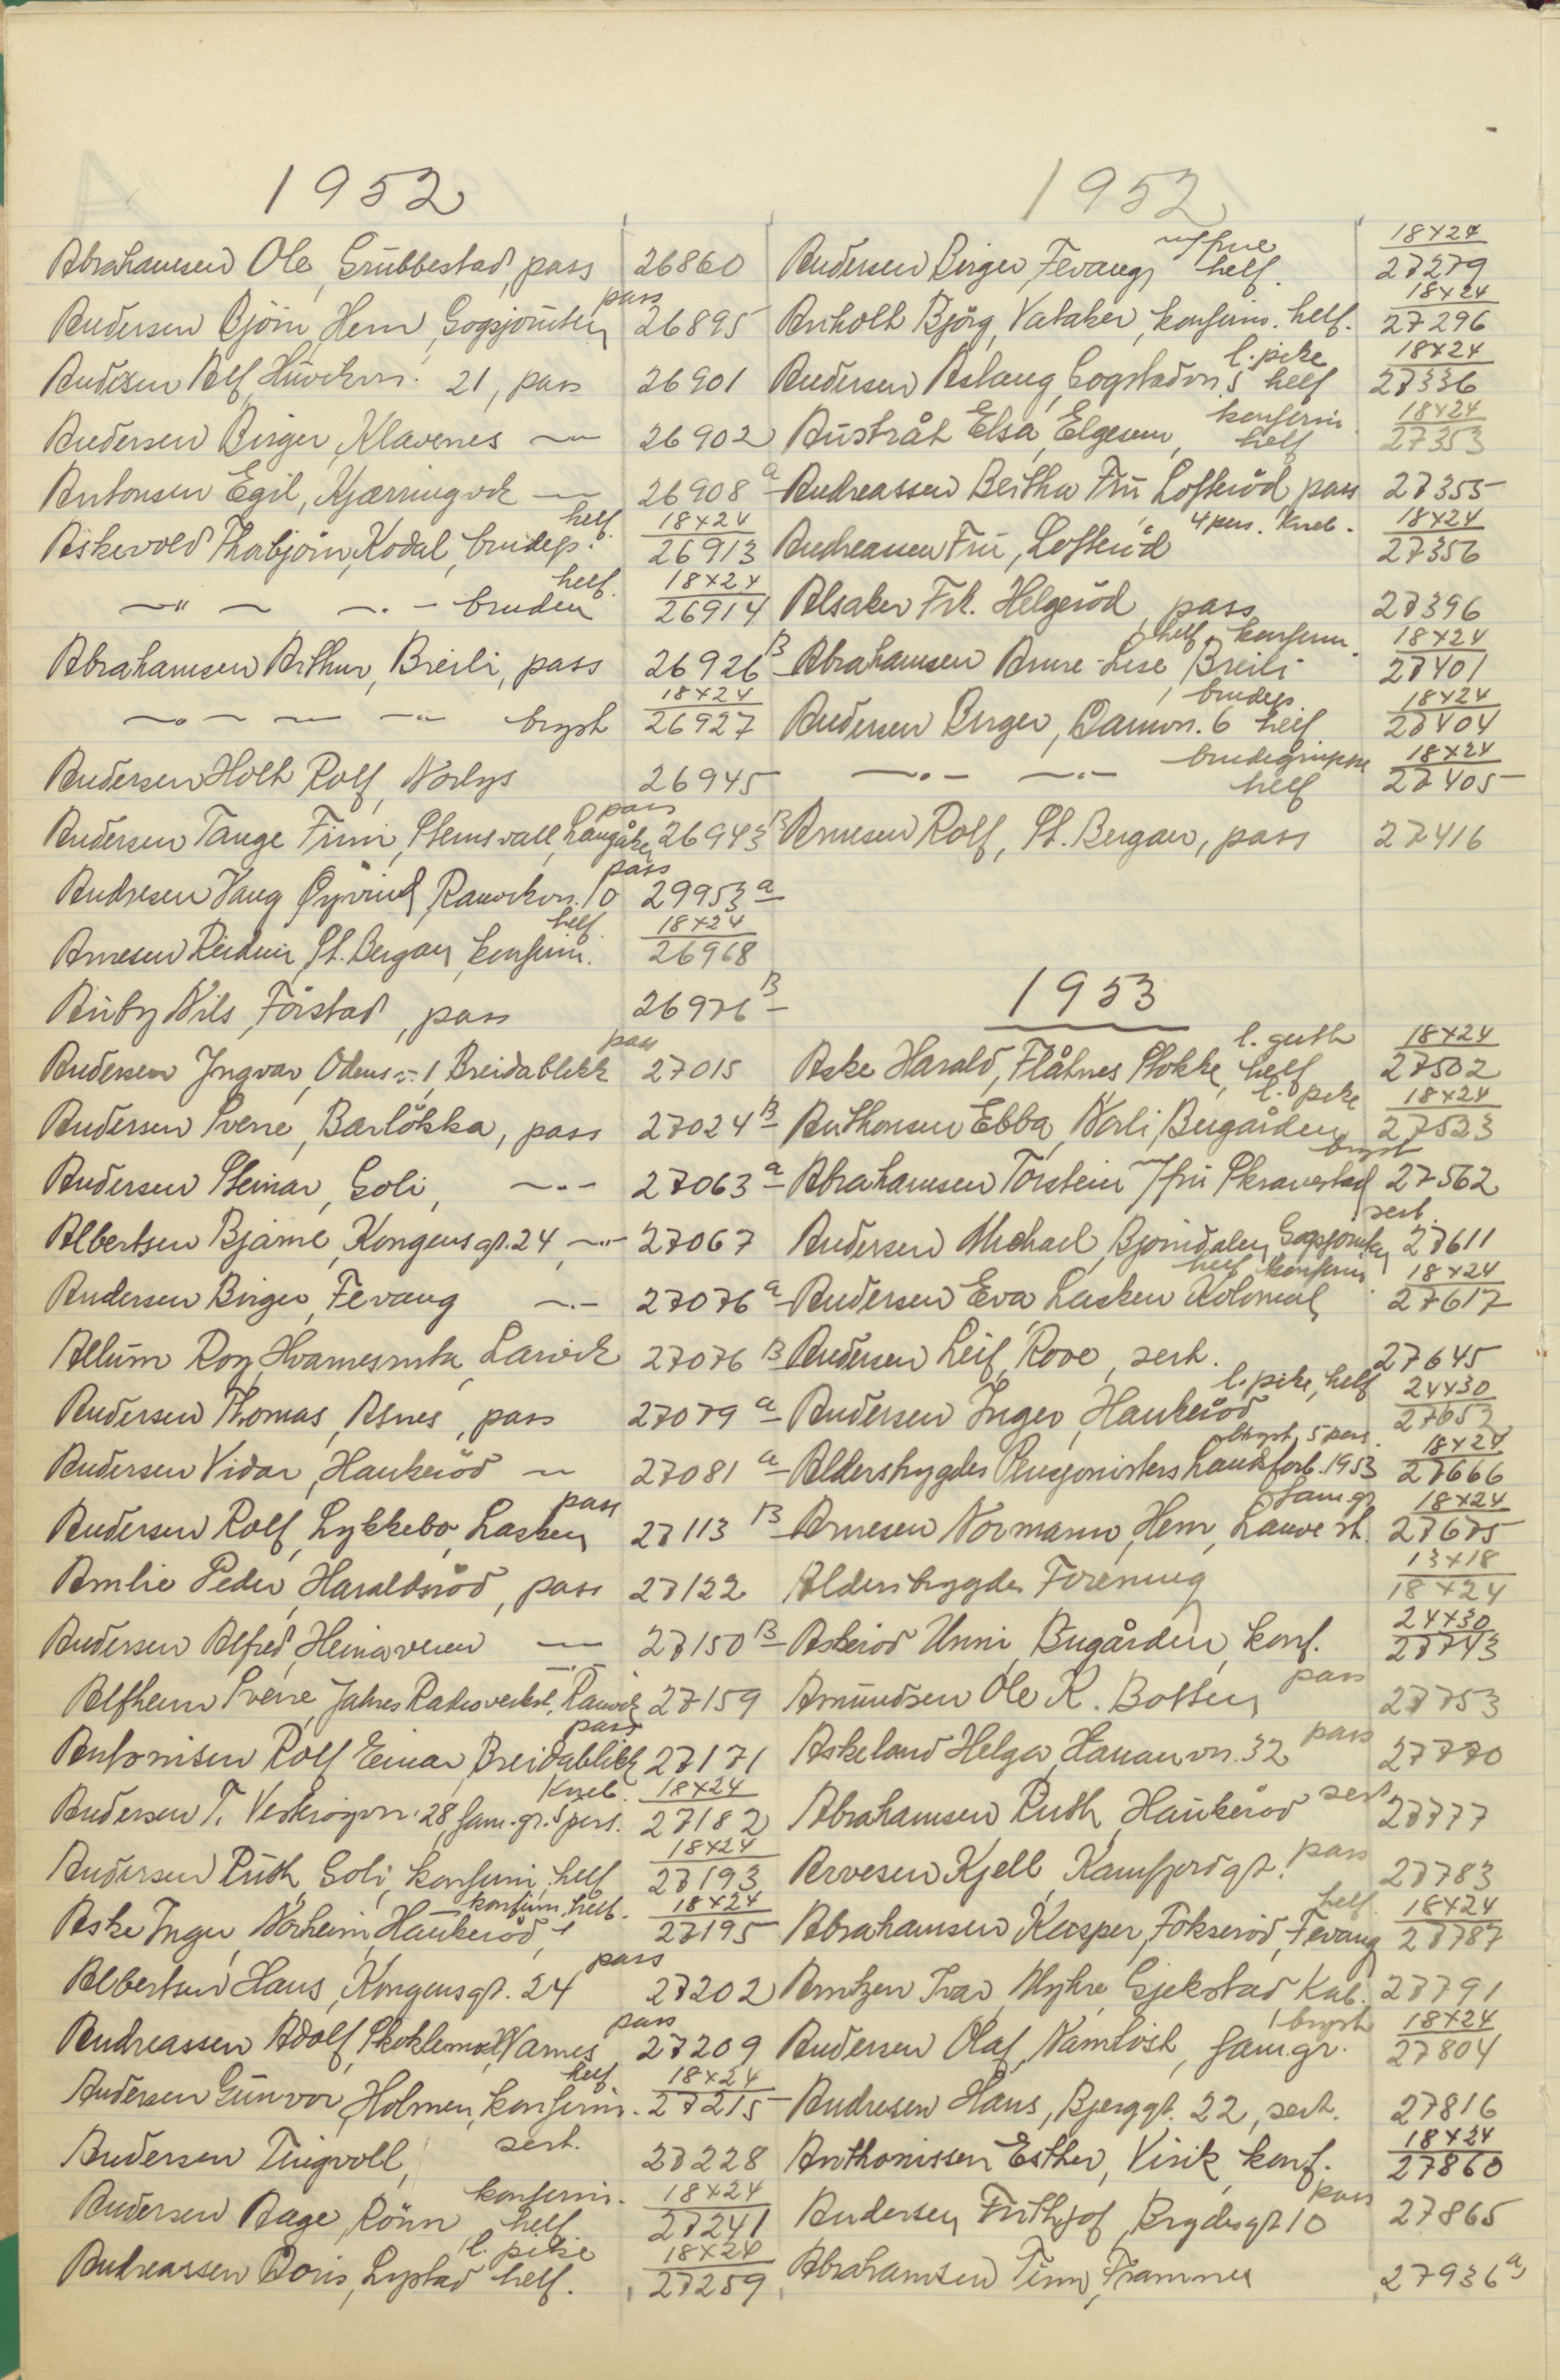 1952
Abrahamsen Ole, Grubbestad, pass 26860
Andersen Björn, Hem, Gogsjørnten pass 26895
Andersen Alf, 21, pass 26901
Andersen Birger, Klavenes —"— 26902
Antonsen Egil, Kjærringvik — 26908 a
Askevold Thorbjörn, Kodal, brudep. helf. 18x24 26913
—"— —.— bruden helf. 18x24 26914
Abrahamsen Arthur, Breili, pass 26926 B
—.— — —"— bryst 18x24 26927
Andersen Holt Rolf, Norlys 26945
Andersen Tange Finn, Stensvall, Langåker pass 26943 B
Andresen Haug Øyvind, Ranvikvn. 10 pass 29953 a
Arnesen Reidun, St. Bergan, konfirm. helf. 18x24 26968
Auby Nils, Forstad, pass 26976 B
Andersen Ingvar, Odensv. 1 Breidablikk pass 27015
Andersen Sverre, Barlökka, pass 27024 B
Andersen Steinar, Goli, —.— 27063 a
Albertsen Bjarne, Kongensgt. 24, —"— 27067
Andersen Birger, Fevang —.— 27076 a
Allum Roy, Larvik 27076 B
Andersen Thomas, Asnes, pass 27079 a
Andersen Vidar, Haukeröd — 27081 a
Andersen Rolf, Lykkebo, Lasken pass 27113 B
Amlie Peder, Haraldsröd, pass 27122
Andersen Alfred, Heimaveien — 27150 B
Alfheim Sverre, Jahres Radioverkst, Ranvik —.— 27159
Antonisen Rolf Einar, Breidablikk pass 27171
Andersen T. Veskrogvn. 28, fam.gr. 5 pers. Kneb. 18x24 27182
Andersen Ruth, Goli, konfirm, helf 18x24 27193
Aske Inger, Norheim, Haukeröd, konfirm, helf. 18x24 27195
Albertsen Hans, Kongensgt. 24 pass 27202
Andreassen Adolf, Skoklemoel, Varnes pass 27209
Andersen Gunvor, Holmen, konfirm. helf 18x24 27215
Andersen Tingvoll, sert. 27228
Andersen Aage, Rönn konfirm. helf. 18x24 27241
Andreassen Doris, Lystad l. pike helf. 18x24 27259
1952
Andersen Birger, Fevang m/frue helf. 18x24 27279
Anholt Bjørg, Vataker, konfirm. helf. 18x24 27296
Andersen Aslaug, Gogstadvn. 5 l. pike helf 18x24 27336
Austråt Elsa, Elgesem, konfirm. helf 18x24 27353
Andreassen Bertha Fru Lofteröd pass 27355
Andreassen Fru, Lofteröd 4 pers. Kneb. 18x24 27356
Alsaker Frk. Helgeröd, pass 27396
Abrahamsen Anne-Lise, Breili helf. konfirm. 18x24 27401
Andersen Birger, 6 brudep helf 18x24 27404
—.— —.— brudegruppe helf 18x24 27405
Arnesen Rolf, St. Bergan, pass 27416
1953
Aske Harald, Flåtnes Stokke, l. gutt helf 18x24 27502
Anthonsen Ebba, Norli, Bugården l. pike 18x24 27523
Abrahamsen Torstein m/fru Skravestad bryst 27562
Andersen Michael, Bjørndalen Gogsjørnten sert. 27611
Andersen Eva Lasken Kolonial helf konfirm 18x24 27617
Andersen Leif, Rove, sert. 27645
Andersen Inger, Haukeröd l. pike, helf 24x30 27652
Alderstrygdes Pensjonisters Landsforb. 1953 bryst, 5 pers. 18x24 27666
Arnesen Normann, Hem, Lauve st. fam gr 18x24 27675
Alderstrygdes Forening 13x18 18x24
Askeröd Unni, Bugården, konf. 24x30 27743
Amundsen Ole K. Botten pass 27753
Askeland Helga, Hauanvn. 32 pass 27770
Abrahamsen Ruth, Haukeröd sert 27777
Arvesen Kjell, Kamfjordgt. pass 27783
Abrahamsen Kasper, Fokseröd, Fevang helf. 18x24 27787
Arntzen Ivar, Myhre, Gjekstad Kab. 27791
Andersen Olaf, Namløst, fam.gr. 1 bryst 18x24 27804
Andresen Hans, Bjerggt. 22, sert. 27816
Anthonissen Esther, Virik, konf. 18x24 27860
Andersen Frithjof, Brydesgt 10 pass 27865
Abrahamsen Finn, Framnes 27936 a